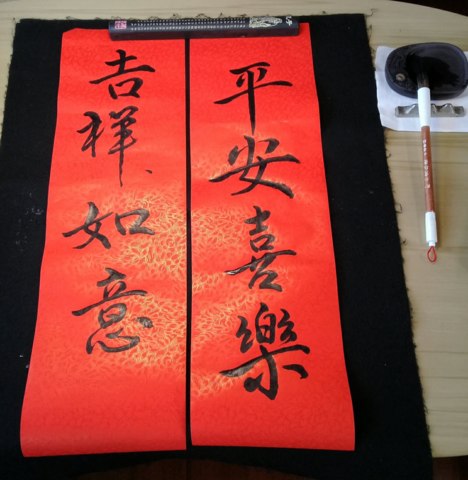 平安喜樂
吉祥如意